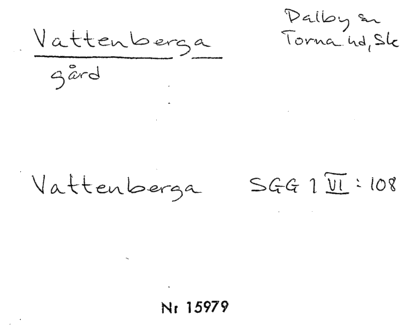 Vattenberga
gård
Dalby sn
Torna hd, Sk
Vattenberga SGG 1 VI : 108
Nr 15979